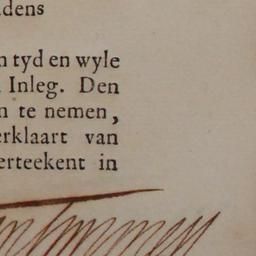 dens
n tyd en wyle
Inleg. Den
n te nemen,
erklaart van
erteekent in